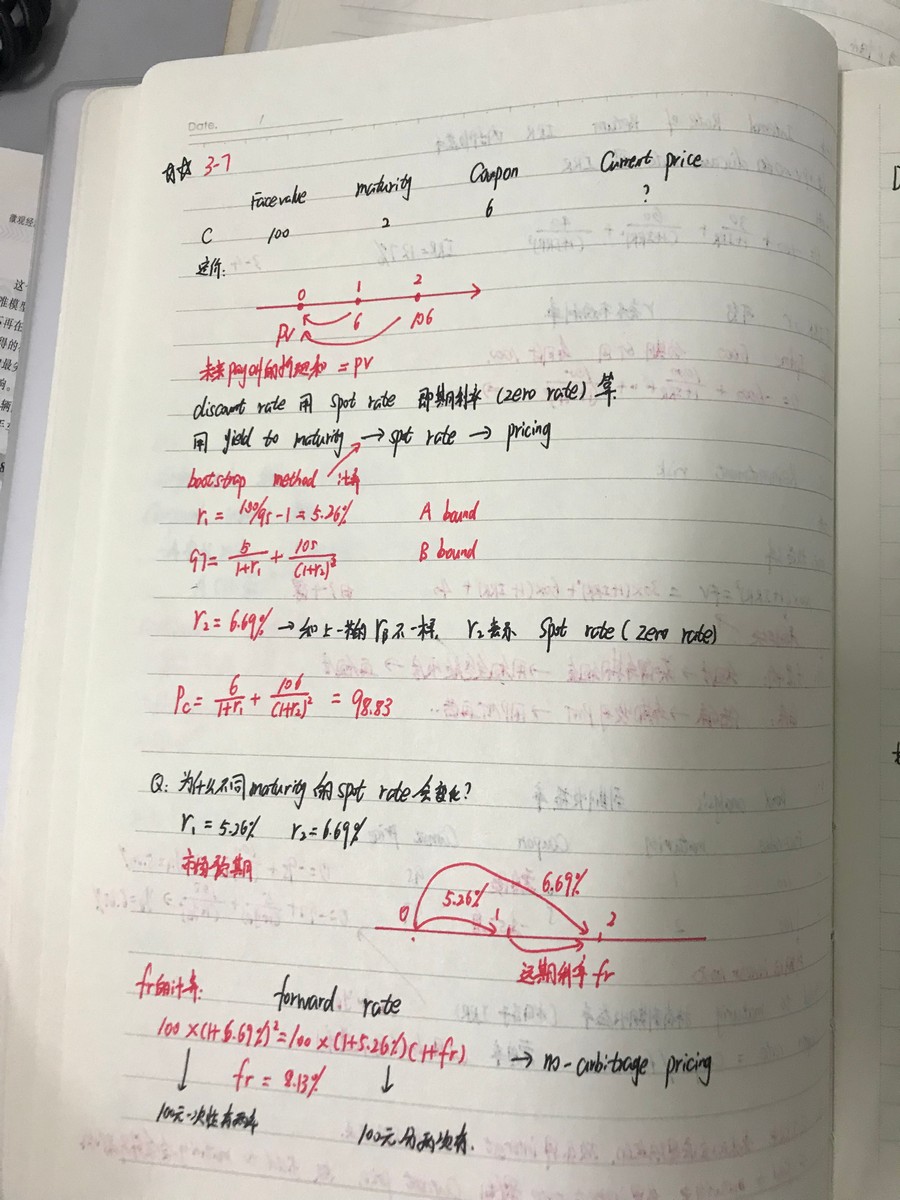 Date. 1
3-7
Face value maturity Coupon Current price
C 100 2 6 ?
定价:
0 1 2
PV 6 106
未来payoff的折现和 = PV
discount rate 用 spot rate 即期利率 (zero rate) 算
用 yield to maturity → spt rate → pricing
bootstrap method 计算
r₁ = 100/95 - 1 = 5.26% A bound
97 = 5/(1+r₁) + 105/(1+r₂)² B bound
r₂ = 6.69% → 和上一节的 rB 不一样, r₂表示 Spot rate (zero rate)
Pc = 6/(1+r₁) + 106/(1+r₂)² = 98.83
Q: 为什么不同 maturity 的 spot rate 会变化?
r₁ = 5.26% r₂ = 6.69%
市场预期
6.69%
5.26%
0 1 2
远期利率 fr
fr的计算:
forward rate
100 × (1+6.69%)² = 100 × (1+5.26%)(1+fr) → no-arbitrage pricing
fr = 8.13%
100元一次性存两年
100元分两次存.